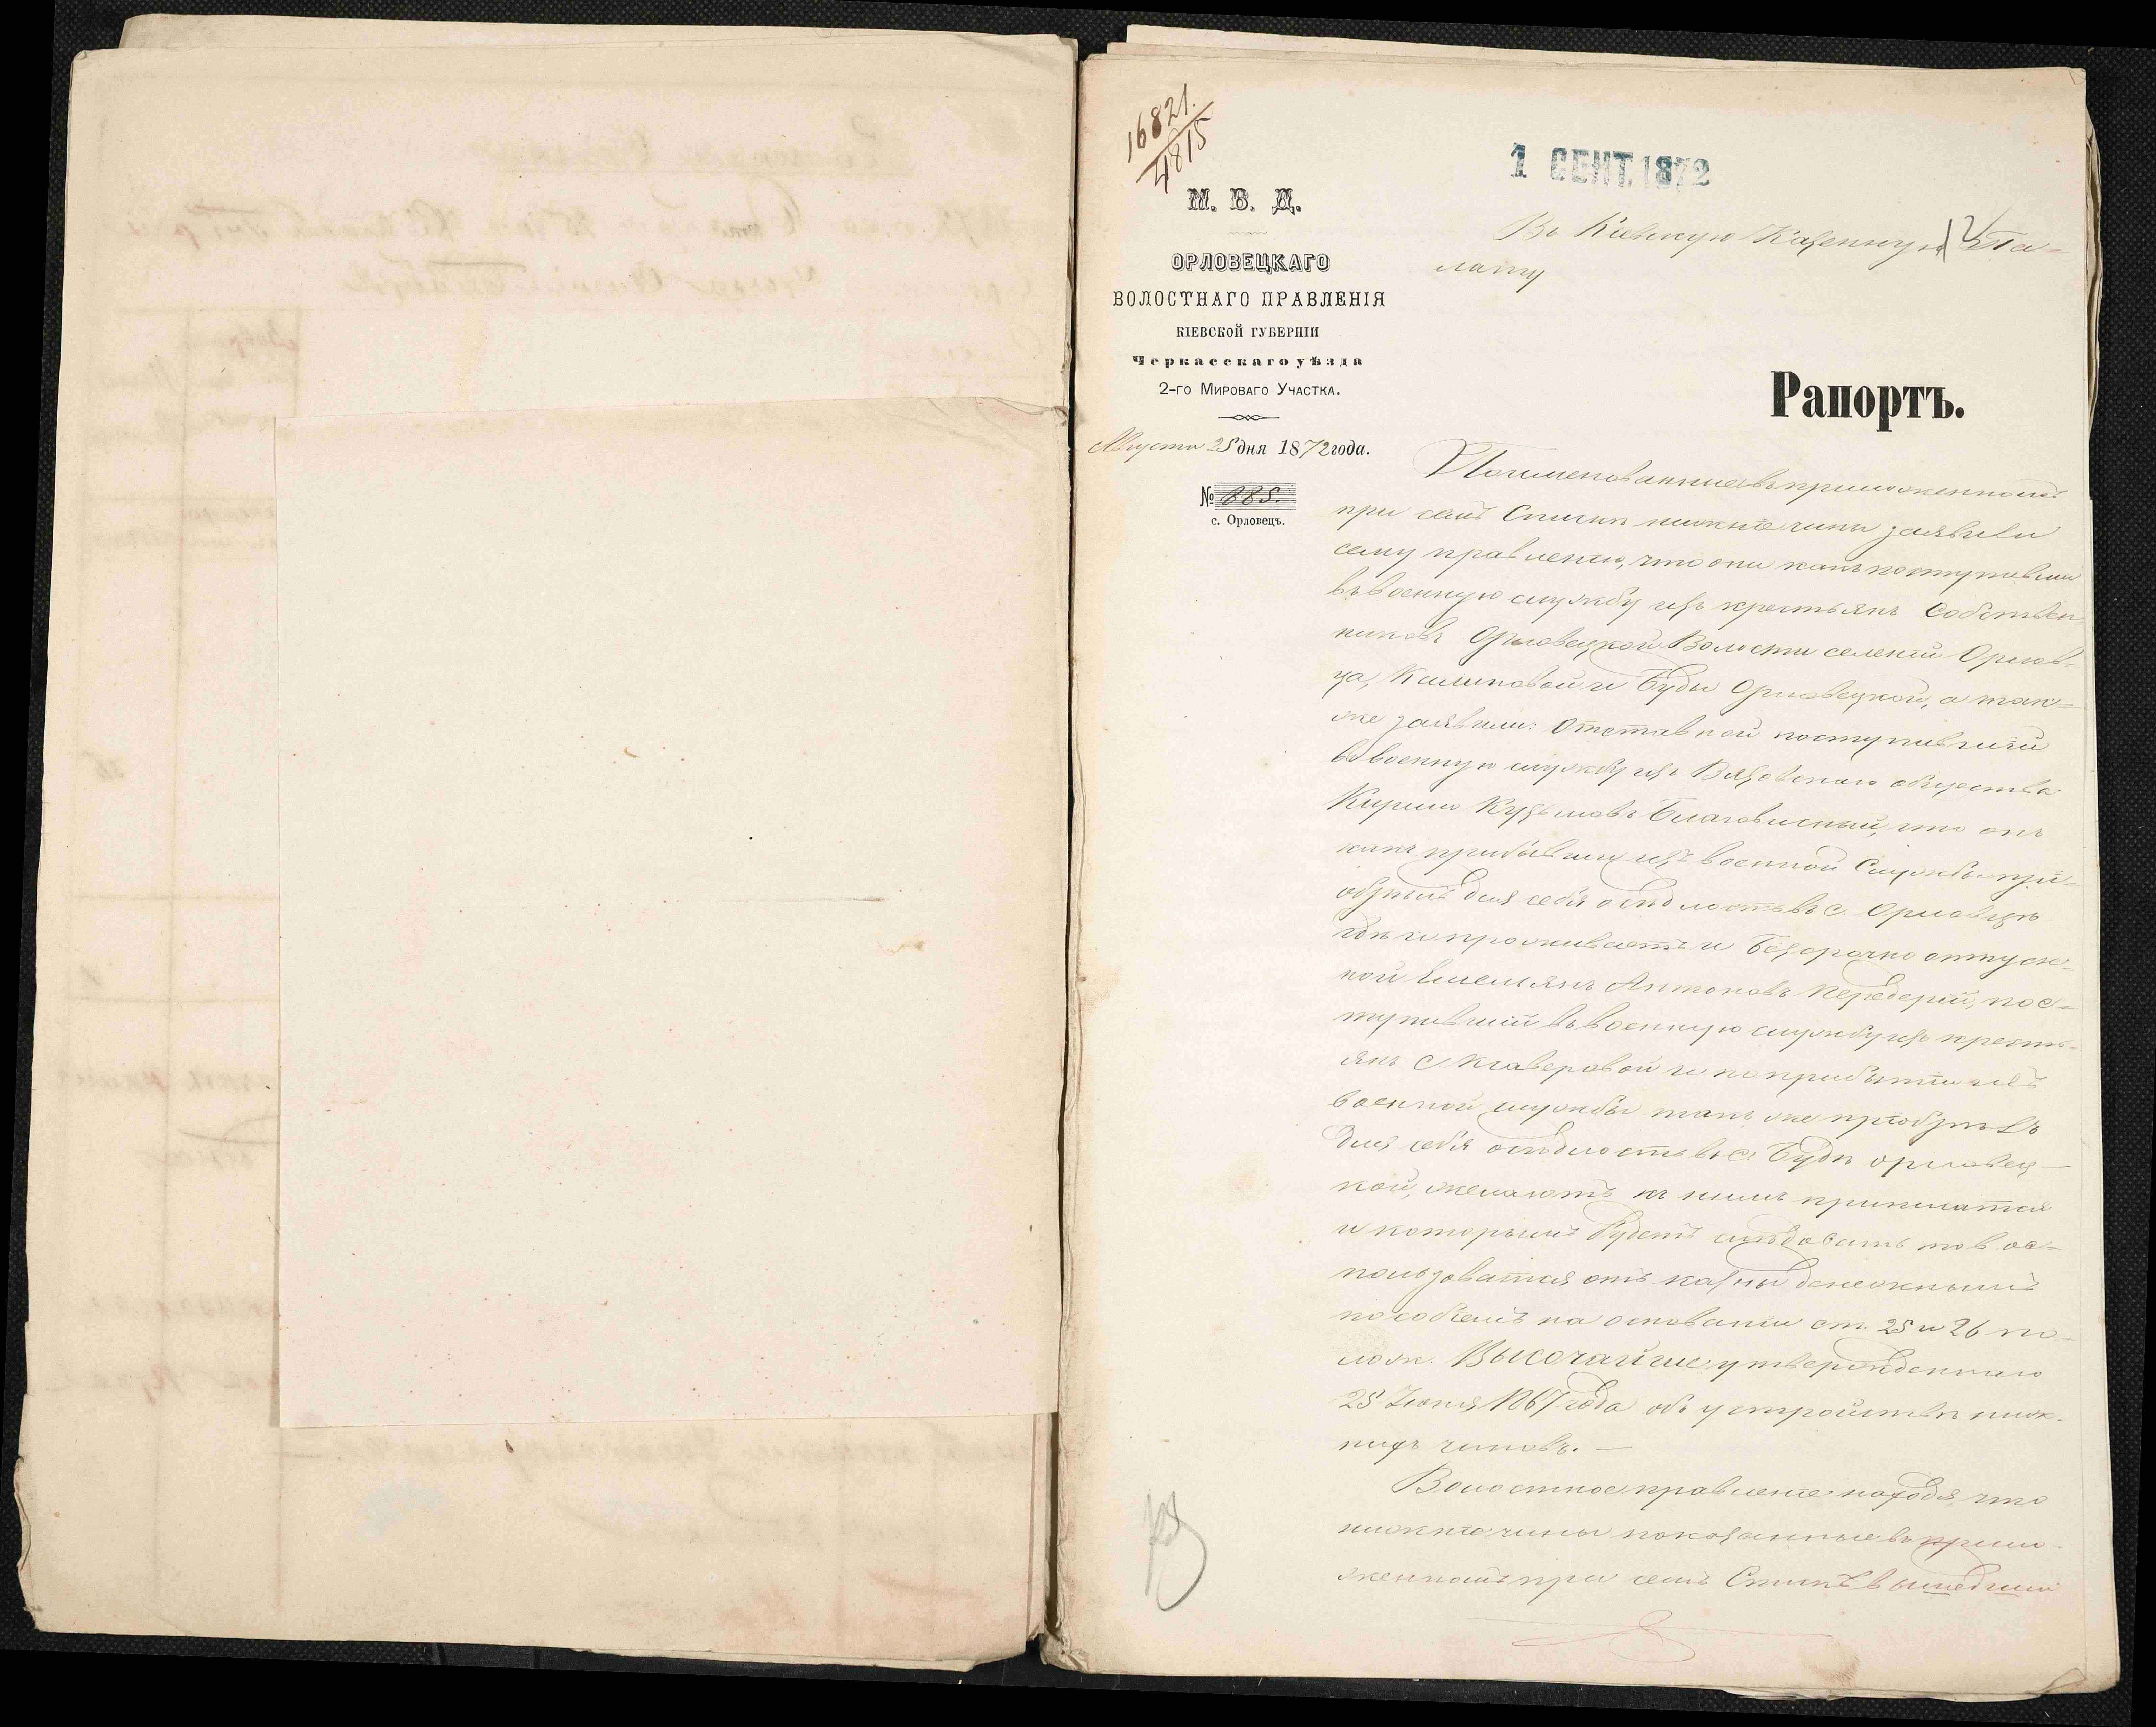 16821.
4815
1 СЕНТ. 1872
М. В. Д.
ОРЛОВЕЦКАГО
ВОЛОСТНАГО ПРАВЛЕНІЯ
КІЕВСКОЙ ГУБЕРНІИ
Черкасскаго уѣзда
2-го Мироваго Участка.
Августа 25 дня 1872 года.
№ 885.
с. Орловецъ.
Въ Кіевскую Казенную Па-
лату
12
Рапортъ.
Поименованные въ приложенномъ
при семъ Спискѣ нижніе чины заявили
сему правленію, что они какъ поступивши
въ военную службу изъ крестьянъ Собствен
никовъ Орловецкой Волости селеній Орлов-
ца, Калиновой и Буды Орловецкой, а так-
же заявили: Отставной поступившій
въ военную службу изъ Вязовскаго общества
Кирило Кузьмовъ Благовисный, что онъ
какъ прибывши изъ военной Службы прі-
обрѣлъ для себя осѣдлость въ с. Орловцѣ
гдѣ и проживаетъ и Безсрочно отпуск-
ной Емельянъ Антоновъ Передерій, пос-
тупившій въ военную службу изъ кресть-
янъ с. Ксаверовой и по прибытіи изъ
военной службы такъ же пріобрѣлъ
для себя осѣдлость въ с. Будѣ орловец-
кой, желаютъ къ нимъ приписатся
и которымъ будетъ слѣдовать тов вос-
пользоватся отъ казны денежнымъ
пособіемъ на основаніи ст. 25 и 26 по-
лож. Высочайше утвержденнаго
25 Іюня 1867 года объ устройствѣ ниж-
нихъ чиновъ. —
Волостное правленіе находя, что
нижніе чины показанные въ прило-
женномъ при семъ Спискѣ вышедшии